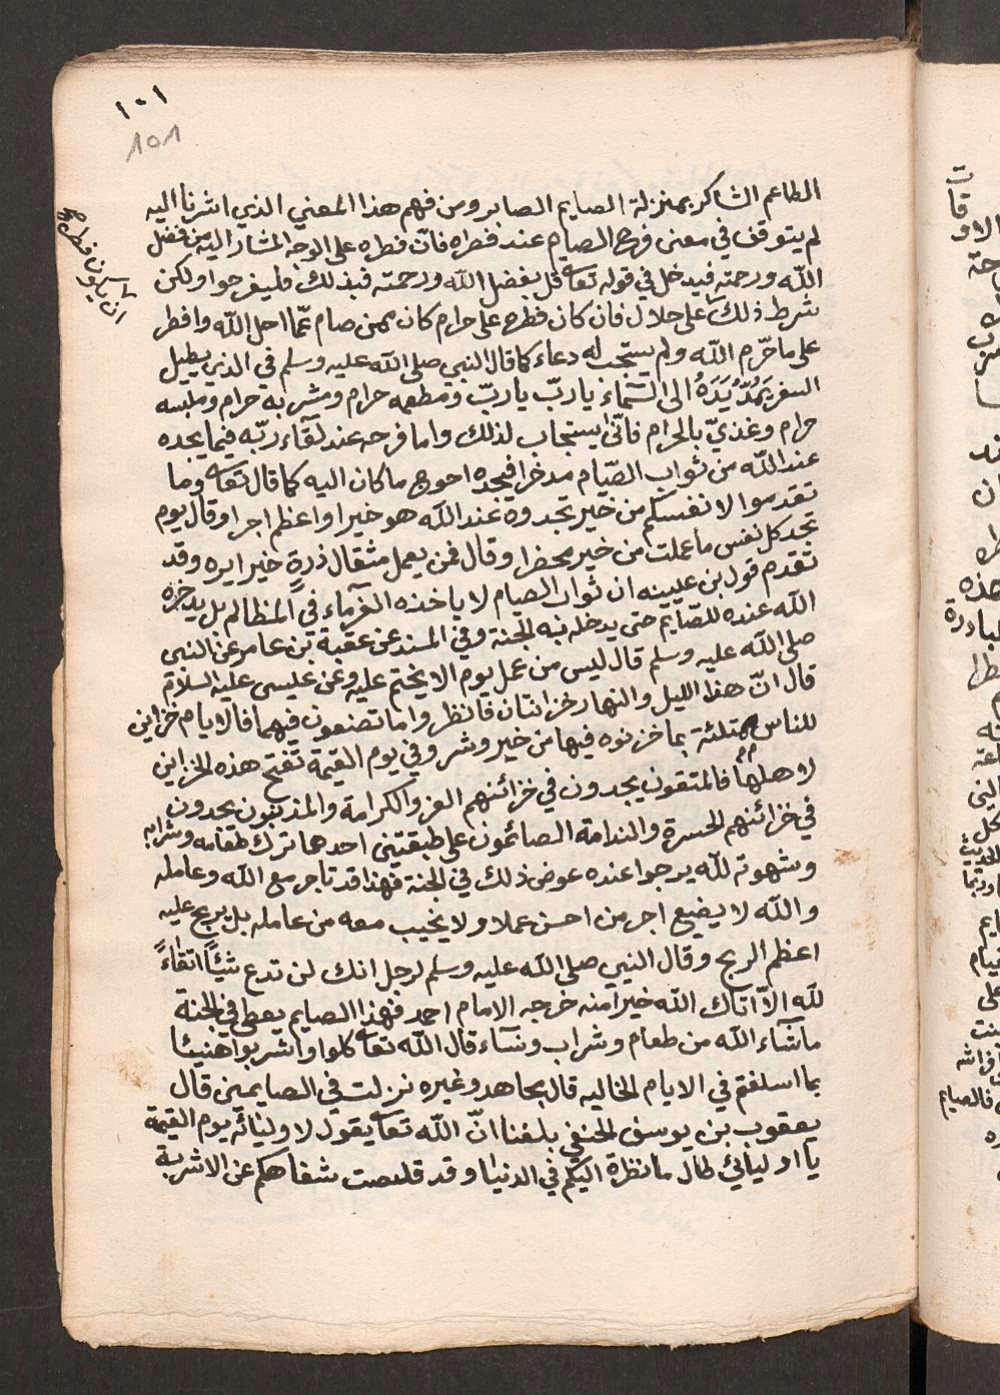 ١٠١
101
الطاعم الشاكر بمنزلة الصايم الصابر ومن فهم هذا المعني الذي اشرنا اليه
لم يتوقف في معنى فرح الصايم عند فطره فان فطره على الوجه المشار اليه من فضل
الله ورحمته فيدخل في قوله تعا قل بفضل الله ورحمته فبذلك فليفرحوا ولكن
شرط ذلك على حلال فان كان فطره على حرام كان ممن صام عمّا احل الله وافطر
ان يكون فطره
على ما حرّم الله ولم يستجب له دعاء كما قال النبي صلى الله عليه وسلم في الذي يطيل
السفر يَمُدّ يَدَهُ الى السَّماء يا ربّ يا ربّ ومطعمه حرام ومشربه حرام وملبسه
حرام وغذيّ بالحرام فانّى يستجاب لذلك واما فرحه عند لقآء ربّه فيما يجده
عند الله من ثواب الصّيام مدخرا فيجده احوج ما كان اليه كما قال تعا وما
تقدموا لانفسكم من خير تجدوه عند الله هو خيرا واعظم اجرا وقال يوم
تجد كل نفس ما عملت من خير محضرا وقال فمن يعمل مثقال ذرةٍ خيرا يره وقد
تقدم قول بن عيينه ان ثواب الصيام لا ياخذه الغرمآء في المظالم بل يدخره
الله عنده للصايم حتى يدخله به الجنة وفي المسند عن عقبة بن عامر عن النبى
صلى الله عليه وسلم قال ليس من عمل يوم الا يختم عليه وعن عيسى عليه السلام
قال انّ هذا الليل والنهار خزانتان فانظروا ما تصنعون فيهما فالايام خزاين
للناس ممتلئة بما خزنوه فيها من خير وشر وفي يوم القيمة تفتح هذه الخزاين
لاهلها فالمتقون يجدون في خزائنهم العز والكرامة والمذنبون يجدون
في خزائنهم الحسرة والندامة الصائمون على طبقتين احدها ترك طعامه وشرابه
وشهوته لله يرجوا عنده عوض ذلك في الجنة فهذا قد تاجر مع الله وعامله
والله لا يضيع اجر من احسن عملا ولا يخيب معه من عامله بل يربح عليه
اعظم الربح وقال النبي صلى الله عليه وسلم لرجل انك لن تدع شيئًا اتقاءً
لله الاّ اتاك الله خيرا منه خرجه الامام احمد فهذا الصايم يعطى في الجنة
ما شآء الله من طعام وشراب ونسآء قال الله تعا كلوا واشربوا هنيئا
بما اسلفتم في الايام الخاليه قال مجاهد وغيره نزلت في الصايمين قال
يعقوب بن يوسف الحنفي بلغنا انّ الله تعا يقول لاوليائه يوم القيمة
يا اوليائي طال ما نظرة اليكم في الدنيا وقد قلصت شفاهكم عن الاشربة